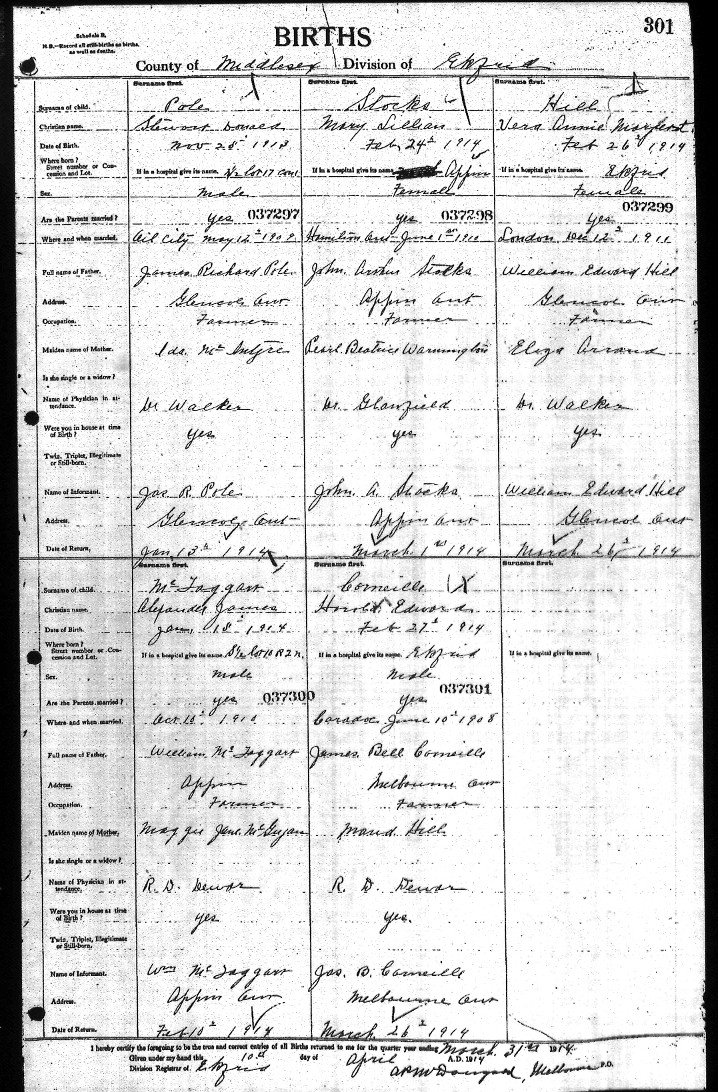 Schedule B.
N.B.—Record all still-births as births, as well as deaths.
BIRTHS
301
County of Middlesex Division of Ekfrid
Surname first. Surname first. Surname first.
Surname of child. Pole Stocks Hill
Christian name. Stewart Donald Mary Lillian Vera Annie Margaret
Date of Birth. Nov 28th 1913 Feb 24th 1914 Feb 26th 1914
Where born? Street number or Concession and Lot. If in a hospital give its name. Lot 17 If in a hospital give its name. Appin If in a hospital give its name. Ekfrid
Sex. Male Female Female
037297 037298 037299
Are the Parents married? yes yes yes
Where and when married. Oil City May 12th 1909 Hamilton Ont June 1st 1910 London Dec 12th 1911
Full name of Father. James Richard Pole John Arthur Stocks William Edward Hill
Address. Glencoe Ont Appin Ont Glencoe Ont
Occupation. Farmer Farmer Farmer
Maiden name of Mother. Ida McIntyre Pearl Beatrice Warmington Eliza
Is she single or a widow?
Name of Physician in attendance. Dr Walker Dr. Glanfield Dr. Walker
Were you in house at time of Birth? yes yes yes
Twin, Triplet, Illegitimate or Still-born.
Name of Informant. Jas R. Pole John A. Stocks William Edward Hill
Address. Glencoe Ont Appin Ont Glencoe Ont
Date of Return. Jan 13th 1914 March 1st 1914 March 26th 1914
Surname first. Surname first. Surname first.
Surname of child. McTaggart Corneille
Christian name. Alexander James Harold Edward
Date of Birth. Jan 13th 1914 Feb 27th 1914
Where born? Street number or Concession and Lot. If in a hospital give its name. S½ Lot 10 R 2 n. If in a hospital give its name. Ekfrid If in a hospital give its name.
Sex. Male Male
037300 037301
Are the Parents married? yes yes
Where and when married. Oct 10th 1910 Caradoc June 10th 1908
Full name of Father. William McTaggart James Bell Corneille
Address. Appin Melbourne Ont
Occupation. Farmer Farmer
Maiden name of Mother. Maggie Jane McGugan Maud Hill
Is she single or a widow?
Name of Physician in attendance. R. D. Dewar R. D. Dewar
Were you in house at time of Birth? yes yes.
Twin, Triplet, Illegitimate or Still-born.
Name of Informant. Wm McTaggart Jas. B. Corneille
Address. Appin Ont Melbourne Ont
Date of Return. Feb 10th 1914 March 26th 1914
I hereby certify the foregoing to be the true and correct entries of all Births returned to me for the quarter year ending March 31st 1914.
Given under my hand this 10th day of April A.D. 1914
Division Registrar of Ekfrid A P McDougald, Melbourne P.O.